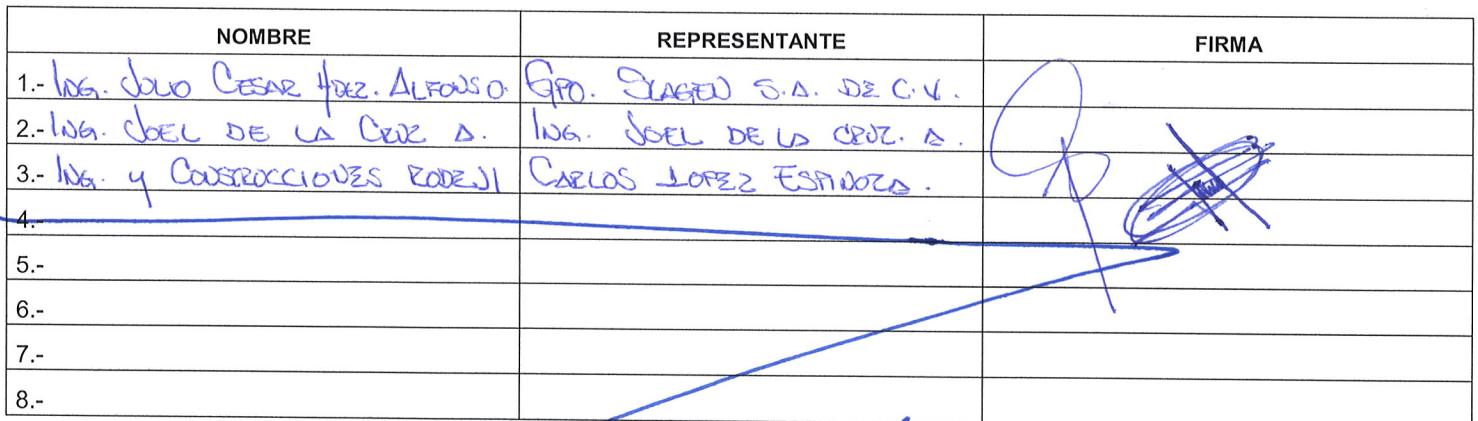 NOMBRE REPRESENTANTE FIRMA
1.- ING. JULIO CESAR HDEZ. ALFONSO. GPO. SLAGEN S.A. DE C.V.
2.- ING. JOEL DE LA CRUZ A. ING. JOEL DE LA CRUZ. A.
3.- ING. y CONSTRUCCIONES RODEJI CARLOS LOPEZ ESPINOZA.
4.-
5.-
6.-
7.-
8.-